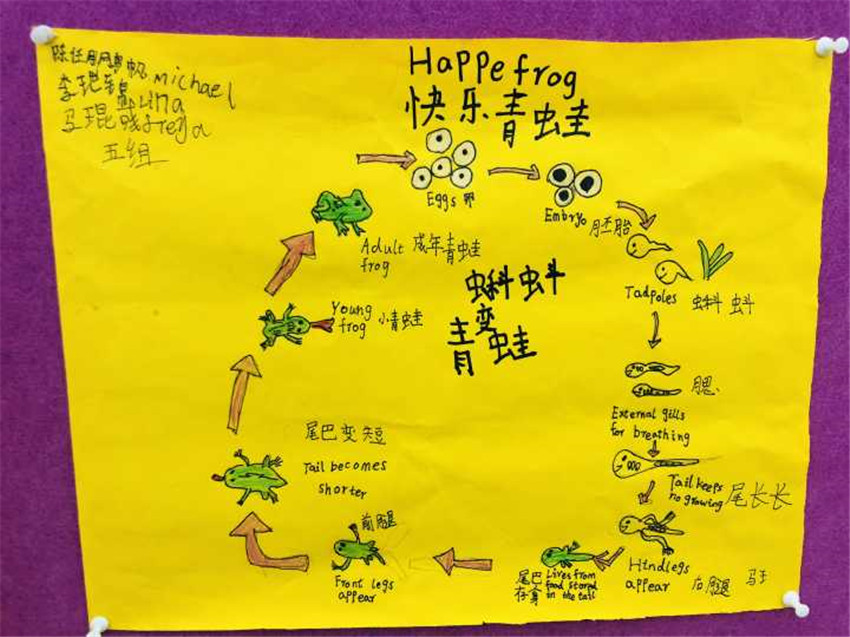 Michael
李
Lina
马琨
Freya
五组
Happe frog
快乐青蛙
Eggs 卵
Embryo 胚胎
Tadpoles 蝌蚪
External gills
for breathing
腮
Tail keeps
no growing
尾长长
Hindlegs
appear
后腿
Lives from
food stored
in the tail
尾巴
存食
Front legs
appear
前腿
尾巴变短
Tail becomes
shorter
Young
frog
小青蛙
Adult
frog
成年青蛙
蝌蚪
变
青蛙